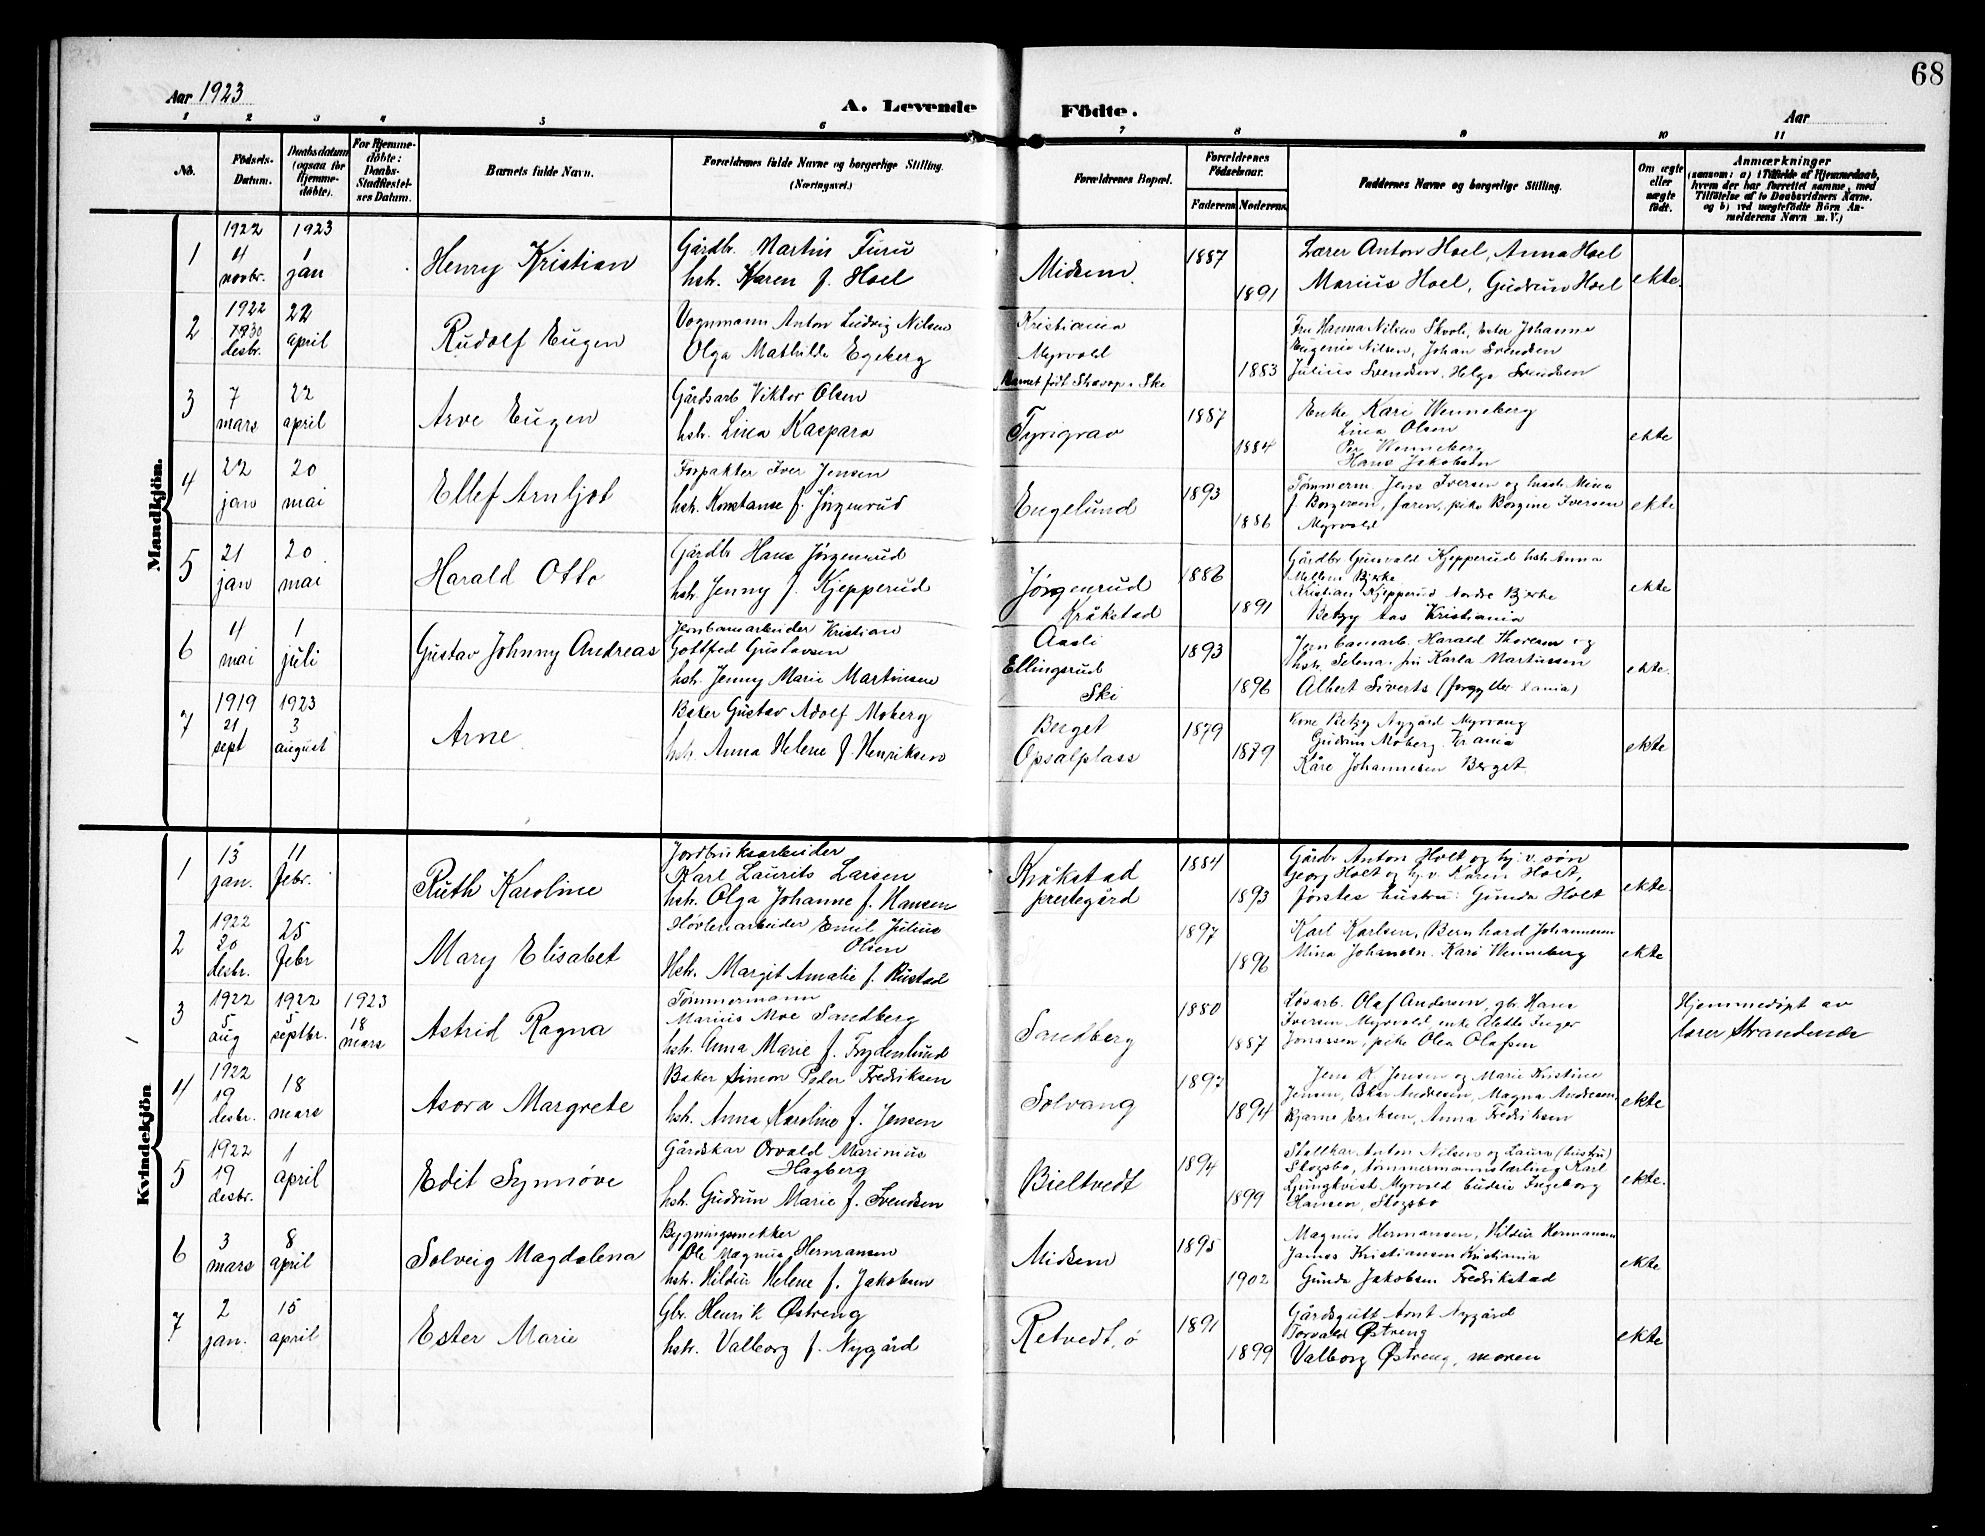 68
Aar 1923
A. Levende Födte.
Aar
1 2 3 4 5 6 7 8 9 10 11
No.
Födsels-
Datum.
Daabsdatum
(ogsaa for
Hjemme-
döbte).
For Hjemme-
döbte:
Daabs-
Stadfæstel-
ses Datum.
Barnets fulde Navn.
Forældrenes fulde Navne og borgerlige Stilling.
(Næringsvei.)
Forældrenes Bopæl.
Forældrenes
Födselsaar.
Faderens
Moderens
Faddernes Navne og borgerlige Stilling.
Om ægte
eller
uægte
født.
Anmærkninger
(saasom: a) i Tilfælde af Hjemmedaab,
hvem der har forrettet samme, med
Tilföielse af to Daabsvidners Navne,
og b) ved uægtefödte Börn An-
melderens Navn m.V.)
Mandkjön.
1
1922
4
novbr.
1923
1
jan
Henry Kristian
Gårdbr. Martin Furu
hstr. Karen f. Hoel
Midsem.
1887
1891
Lærer Anton Hoel, Anna Hoel
Marius Hoel, Gudrun Hoel
ekte.
2
1922
desbr.
22
april
Rudolf Eugen
Vognmann Anton Ludvig Nilsen
Olga Mathilde Egeberg
Kristiania
Myrvold
Barnet født Ski
1883
Fru Hanna Nilsen Ester Johanne
Eugenie Nilsen, Johan Svendsen
Julius Svendsen, Helga Svendsen
3
7
mars
22
april
Arve Eugen
Gårdsarb Viktor Olsen
hstr. Lina Kaspara
Tyrigrav
1887
1884
Enke Kari Wenneberg
Lina Olsen
Per Wenneberg
Hans Jakobsen
ekte
4
22
jan
20
mai
Ellef Arnljot
Forpakter Iver Jensen
hstr. Konstanse f. Jørgenrud
Engelund
1893
1886
Tømmerm. Jens Iversen og hustr. Mina
f. Borgersen, faren, pike Borgine Iversen
Myrvold
ekte
5
21
jan
20
mai
Harald Otto
Gårdbr Hans Jørgenrud
hstr. Jenny f. Kjepperud
Jørgenrud
Kråkstad
1886
1891
Gårdbr Gunvald Kjepperud hstr Anna
Mellem Bjerke
Kristian Kjepperud Nordre Bjerke
Betzy Aas Kristiania
ekte
6
4
mai
1
juli
Gustav Johnny Andreas
Jernbanearbeider Kristian
Gottfred Gustavsen
hstr. Jenny Marie Martinsen
Aasli
Ellingsrud
Ski
1893
1896
Jernbanearb. Harald Thoresen og
hstr. Selena, frk Karla Martinsen
Albert Siverts
ekte.
7
1919
21
sept
1923
3
august
Arne
Baker Gustav Adolf Moberg
hstr. Anna Helene f. Henriksen
Berget
Opsalplass
1879
1879
Kone Betzy Nygård Myrvang
Gudrun Moberg Krania
Kåre Johannesen Berget
ekte
Kvindekjön
1
13
jan.
11
febr.
Ruth Karoline
Jordbruksarbeider
Karl Laurits Larsen
hstr. Olga Johanne f. Hansen
Kråkstad
prestegård
1884
1893
Gårdbr Anton Holt og hj.v. søn
Georg Holt og hj.v. Karen Holt,
Førstes hustru: Gunda Holt
ekte.
2
1922
20
desbr.
25
febr
Mary Elisabet
Høvleriarbeider Emil Julius
Olsen
Hstr. Margit Amalie f. Rustad
1897
1896
Karl Karlsen, Bernhard Johannesen
Mina Johansen. Kari Wenneberg
ekte
3
1922
5
aug
1922
5
septbr.
1923
18
mars
Astrid Ragna
Tømmermann
Marius Moe Sandberg
hstr. Anna Marie f. Frydenlund
Sandberg
1880
1887
Løsarb. Olaf Andersen, gbr. Hans
Iversen Myrvold, enke Alette Inger
Jonassen, pike Olea Olafsen
Hjemmedøpt av
lærer Strandenæs
4
1922
19
desbr.
18
mars
Asora Margrete
Baker Simon Peder Fredriksen
hstr. Anna Karoline f. Jensen
Solvang
1897
1894
Jens K. Jensen og Marie Kristine
Jensen, Oskar Andresen, Magna Andresen,
Bjarne Eriksen, Anna Fredriksen
ekte
5
1922
19
desbr.
1
april
Edit Synnøve
Gårdskar Osvald Marinius
Hagberg
hstr. Gudrun Marie f. Svendsen
Bieltvedt
1894
1899
Stallkar Anton Nilsen og Laura (hustru)
Skogsbo, tømmermannslærling Karl
Ljungkvist Myrvold budeie Ingeborg
Hansen, Skogsbo
ekte.
6
3
mars
8
april
Solveig Magdalena
Bygningssnekker
Ole Magnus Hermansen
hstr. Hildur Helene f. Jakobsen
Midsem
1895
1902
Magnus Hermansen, Hildur Hermansen
James Kristiansen Kristiania
Gunda Jakobsen Fredrikstad
ekte
7
2
jan.
15
april
Ester Marie
Gbr. Henrik Østreng
hstr. Valborg f. Nygård
Retvedt, ø
1891
1899
Gårdsgutt Arnt Nygård
Torvald Østreng
Valborg Østreng, moren
ekte